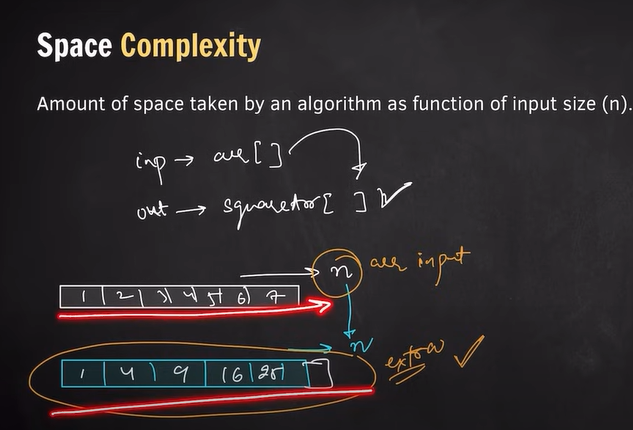 Space Complexity
Amount of space taken by an algorithm as function of input size (n).
inp → arr[ ]
out → squareArr[ ]
n arr input
1 2 3 4 5 6 7
n extra
1 4 9 16 25